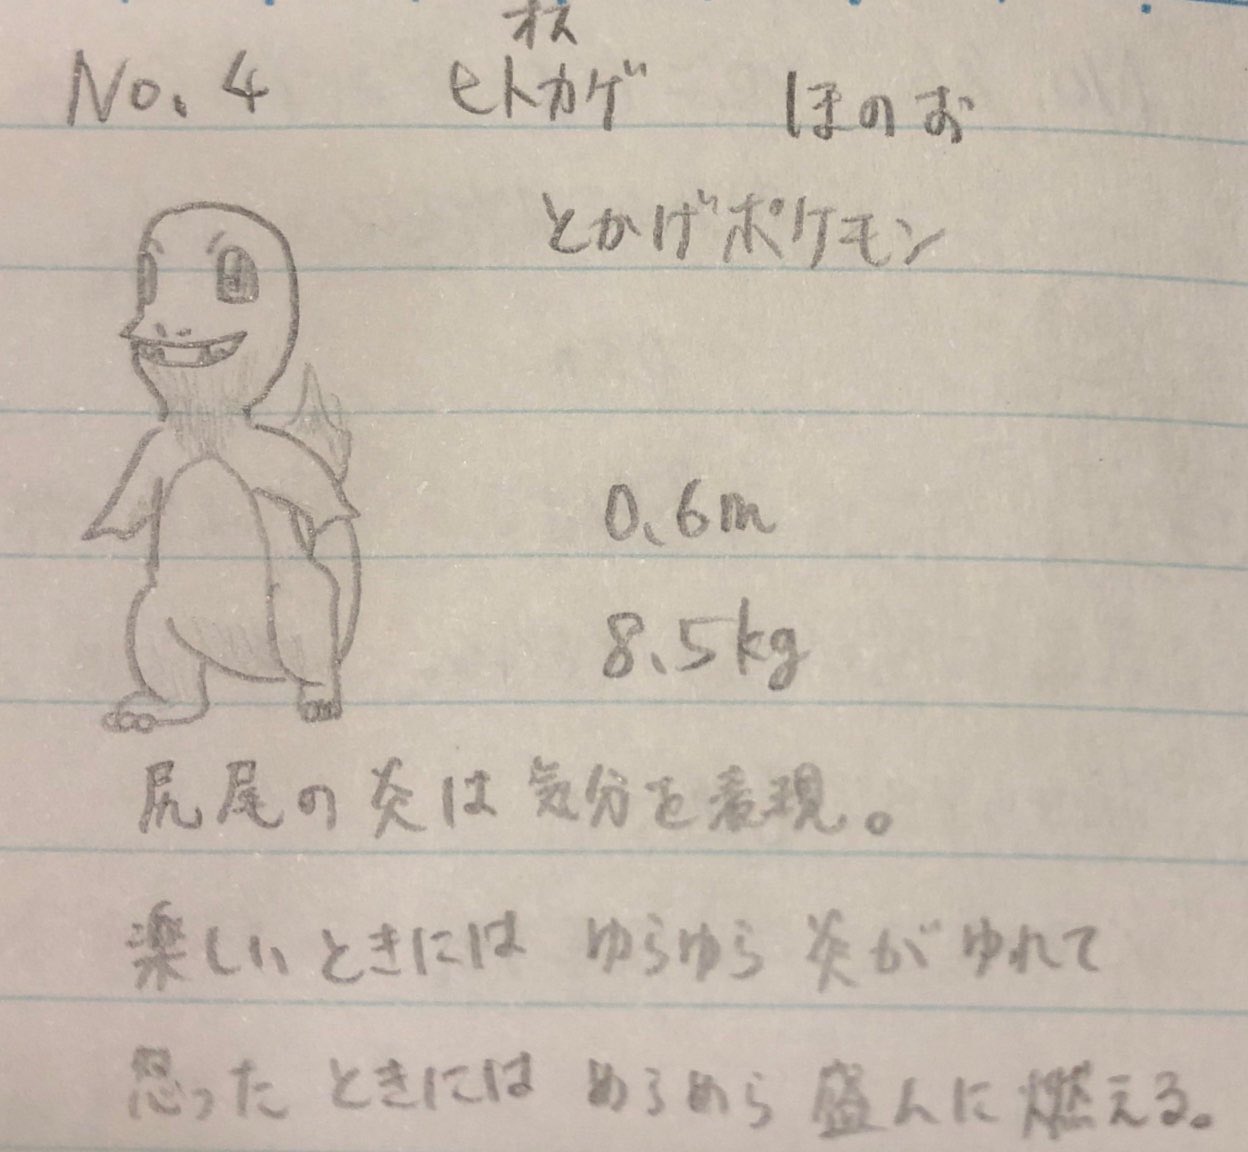 オス
No. 4 ヒトカゲ ほのお
とかげポケモン
0.6m
8.5kg
尻尾の炎は気分を表現。
楽しいときには ゆらゆら 炎が ゆれて
怒った ときには めらめら 盛んに 燃える。